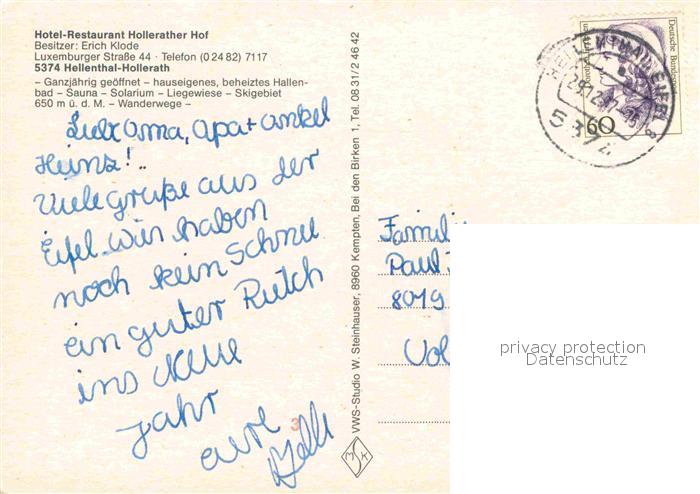 Hotel-Restaurant Hollerather Hof
Besitzer: Erich Klode
Luxemburger Straße 44 · Telefon (0 24 82) 7117
5374 Hellenthal-Hollerath
– Ganzjährig geöffnet – hauseigenes, beheiztes Hallen-
bad – Sauna – Solarium – Liegewiese – Skigebiet
650 m ü. d. M. – Wanderwege –
Oma, Opa + Onkel
Heinz!
Viele grüße aus der
Eifel wir haben
noch kein Schnee
ein guter Rutch
ins neue
Jahr
eure
VWS-Studio W. Steinhauser, 8960 Kempten, Bei den Birken 1, Tel. 08 31/2 46 42
Deutsche Bundespost
60
HELLENTHAL, EIFEL
5374
Familie
Paul
8019
Vol
privacy protection
Datenschutz